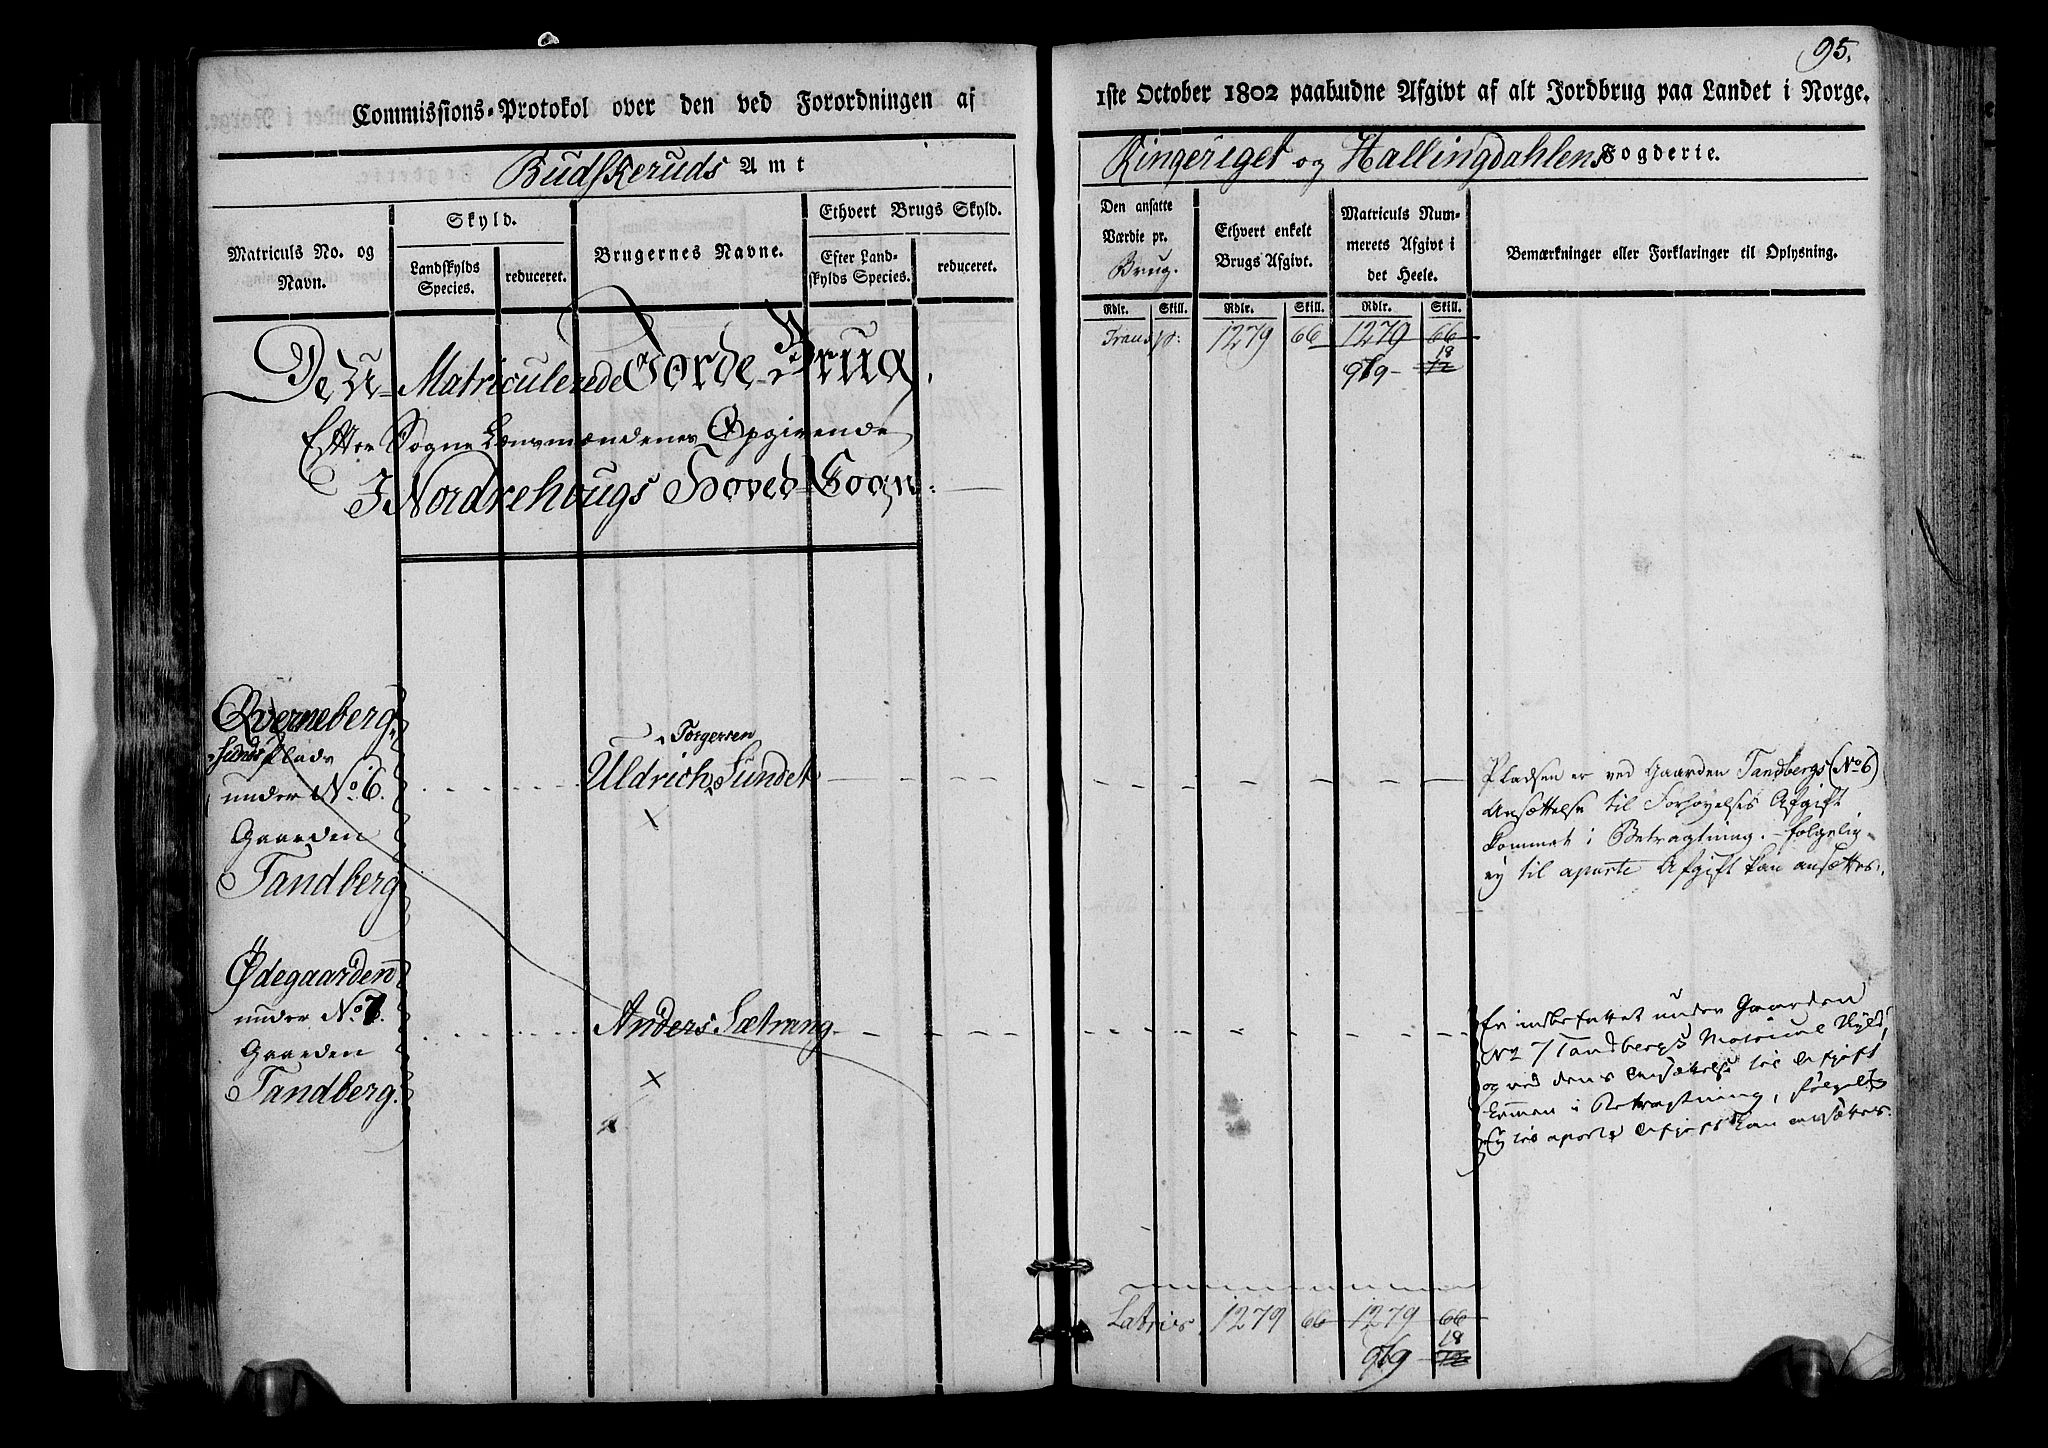 95.
Commissions-Protokol over den ved Forordningen af
1ste October 1802 paabudne Afgivt af alt Jordbrug paa Landet i Norge.
Budskeruds Amt
Ringeriget og Hallingdahlens Fogderie.
Matriculs No. og Navn.
Skyld.
Landskylds Species.
reduceret.
Brugernes Navne.
Ethvert Brugs Skyld.
Efter Landskylds Species.
reduceret.
Den ansatte Værdie pr. Brug.
Ethvert enkelt Brugs Afgivt.
Matriculs Nummerets Afgivt i det Heele.
Bemærkninger eller Forklaringer til Oplysning.
Rdlr. Skill. Rdlr. Skill. Rdlr. Skill.
Transp: 1279 66 1279 66
969 - 18
De U-Matriculerede Jorde-Brug.
Efter Sogne Lensmændenes Opgivende
I Nordrehougs Hoved-Sogn.
Qverneberg
Plads
under No. 6.
Gaarden
Tandberg
Torgersen
Uldrich Sundet
Pladsen er ved Gaarden Tandbergs (No 6)
Ansættelse til Forhøyelses Afgift
kommet i Betragtning. - følgelig
ey til aparte Afgift kan ansættes.
Ødegaarden
under No. 7.
Gaarden
Tandberg.
Anders Sætrang
Er indbefattet under Gaarden
No 7 Tandbergs Matricul Skyld,
og ved dens Ansættelse til Afgift
kommen i Betragtning, følgel.
Ey til aparte Afgift kan ansættes.
Lateris 1279 66 1279 66
969 18